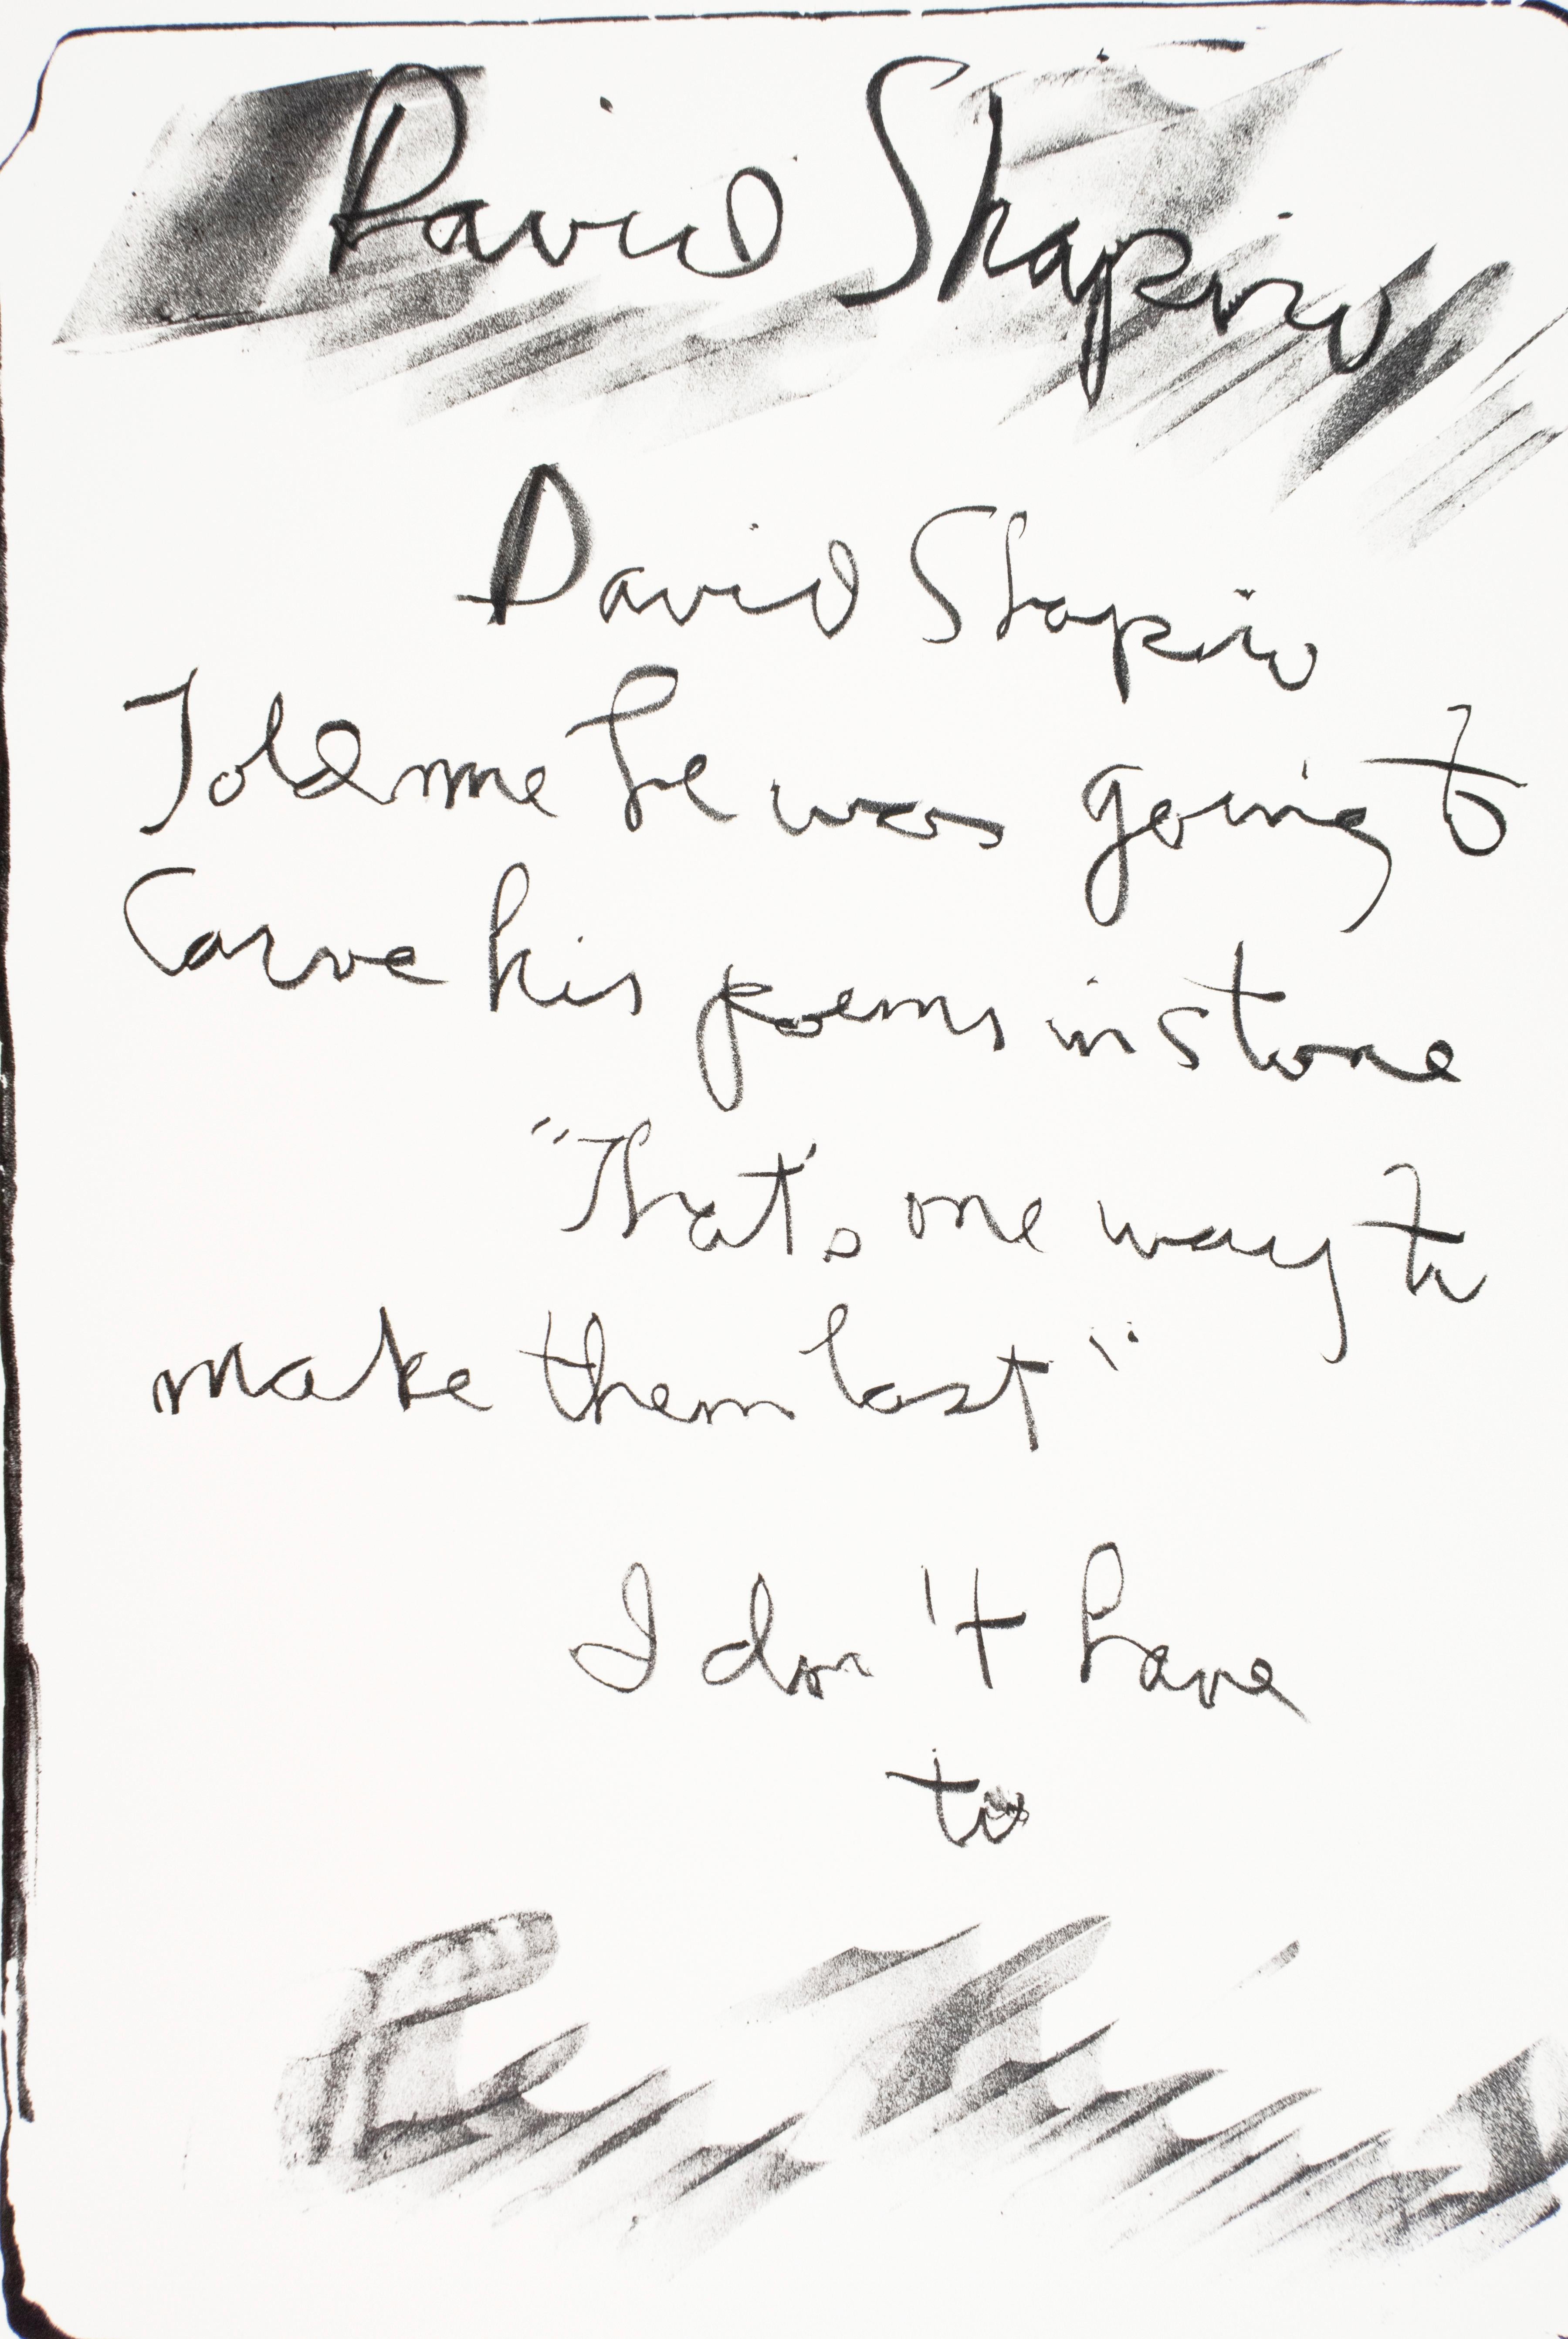 David Shapiro
David Shapiro
Told me he was going to
Carve his poems in stone
"That's one way to
make them last"
I don't have
to